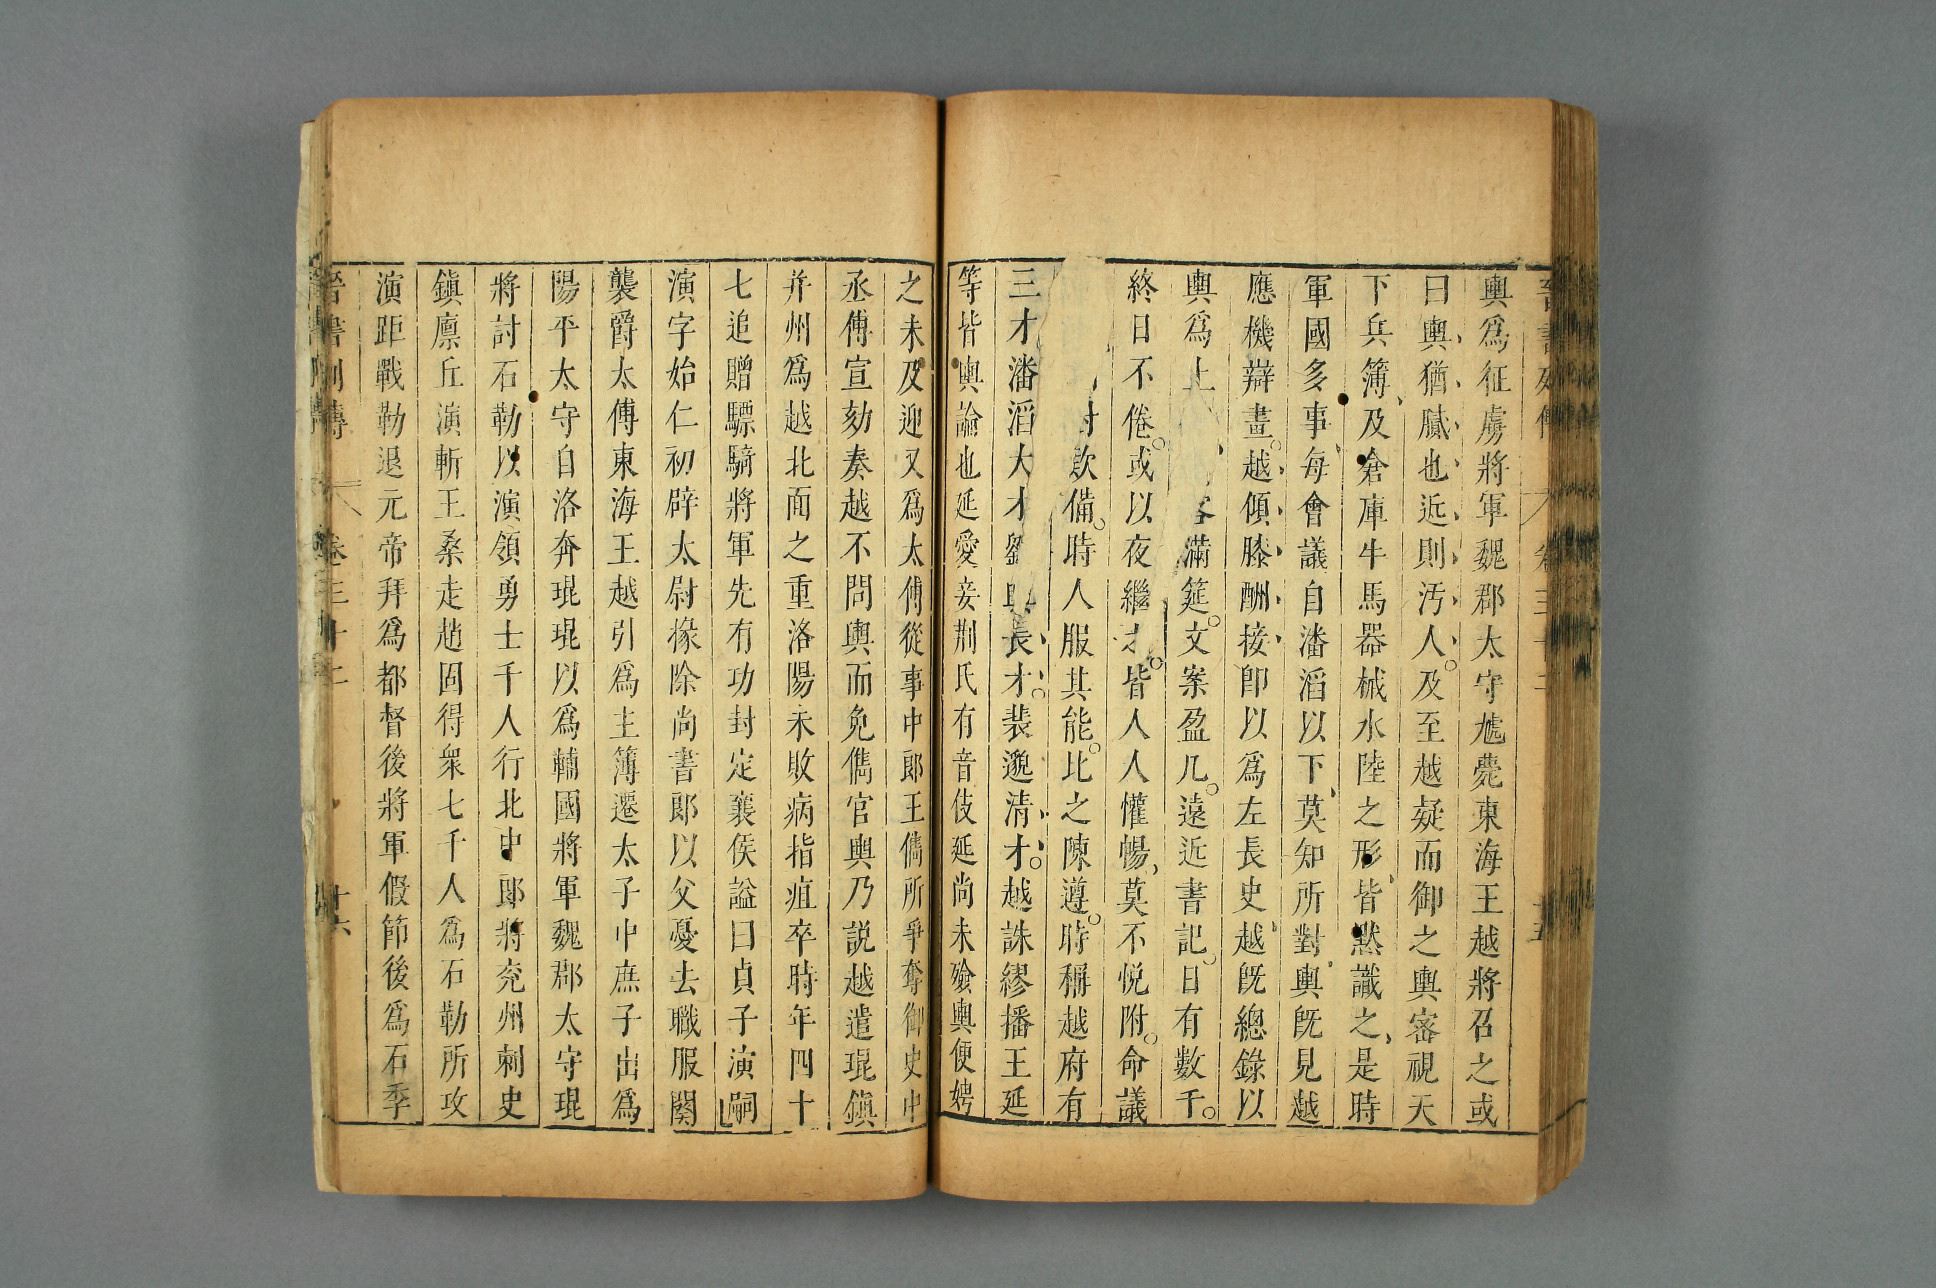 輿爲征虜將軍魏郡太守虓薨東海王越將召之或
曰輿猶膩也近則汚人及至越疑而御之輿密視天
下兵簿及倉庫牛馬器械水陸之形皆默識之是時
軍國多事每會議自潘滔以下莫知所對輿旣見越
應機辯畫越傾膝酬接卽以爲左長史越旣總錄以
輿爲上客滿筵文案盈几遠近書記日有數千
終日不倦或以夜繼之皆人人懽暢莫不悦附命議
款備時人服其能比之陳遵時稱越府有
三才潘滔大才劉長才裴邈清才越誅繆播王延
等皆輿論也延愛妾荆氏有音伎延尚未殮輿便娉
之未及迎又爲太傅從事中郎王儁所爭奪御史中
丞傅宣劾奏越不問輿而免儁官輿乃説越遣琨鎮
并州爲越北面之重洛陽未敗病指疽卒時年四十
七追贈驃騎將軍先有功封定襄侯謚曰貞子演嗣
演字始仁初辟太尉掾除尚書郎以父憂去職服闋
襲爵太傅東海王越引爲主簿遷太子中庶子出爲
陽平太守自洛奔琨琨以爲輔國將軍魏郡太守琨
將討石勒以演領勇士千人行北中郎將兗州刺史
鎮廪丘演斬王桑走趙固得衆七千人爲石勒所攻
演距戰勒退元帝拜爲都督後將軍假節後爲石季
晉書列傳 卷三十二 十六